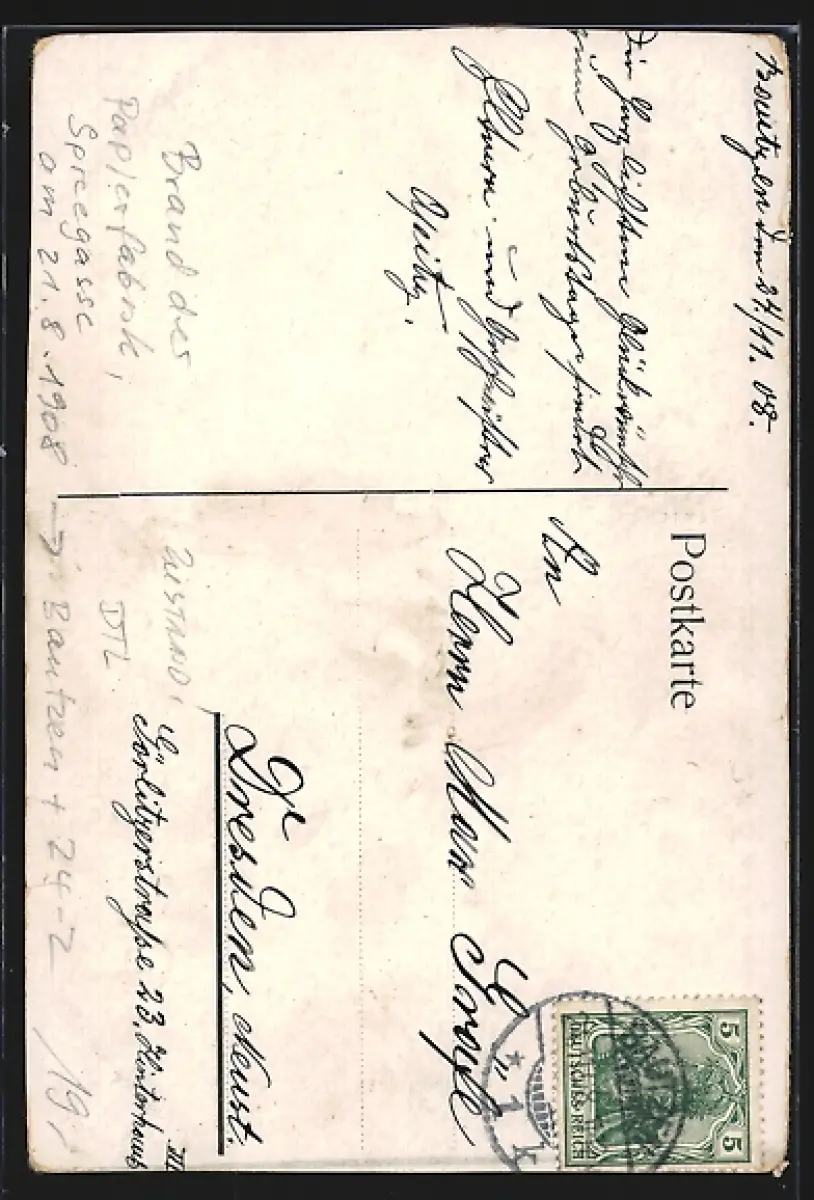 Bautzen den 24/11. 08.
Die herzlichsten Glückwünsche
zum Geburtstage sendet
Eltern und Geschwister
Opitz.
Brand der
Papierfabrik,
Spreegasse
am 21.8.1908 → Bautzen + 24-2 /19,
ZUSTAND,
DTL
Postkarte
An
Herrn Max
Dresden, Neust.
Görlitzerstraße 23, Hinterhaus
III
5 5
DEUTSCHES REICH
BAUTZEN
*1 k